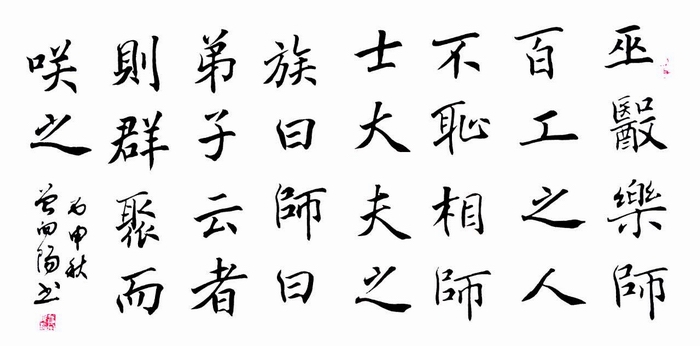 巫醫樂師
百工之人
不恥相師
士大夫之
族曰師曰
弟子云者
則群聚而
咲之
丙申秋
曾向陽书